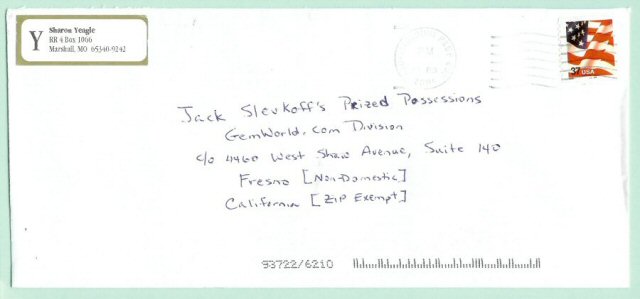 Y
Sharon Yeagle
RR 4 Box 1066
Marshall, MO 65340-9242
37 USA
Jack Slevkoff's Prized Possessions
GemWorld.com Division
c/o 4460 West Shaw Avenue, Suite 140
Fresno [Non-Domestic]
California [ZIP Exempt]
93722/6210